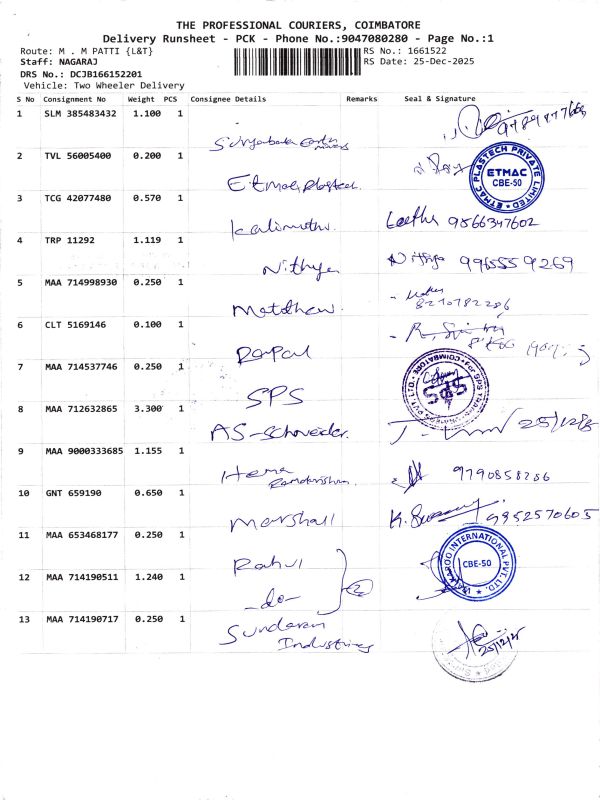 THE PROFESSIONAL COURIERS, COIMBATORE
Delivery Runsheet - PCK - Phone No.:9047080280 - Page No.:1
Route: M . M PATTI {L&T} RS No.: 1661522
Staff: NAGARAJ RS Date: 25-Dec-2025
DRS No.: DCJB166152201
Vehicle: Two Wheeler Delivery
S No Consignment No Weight PCS Consignee Details Remarks Seal & Signature
1 SLM 385483432 1.100 1
2 TVL 56005400 0.200 1 ETMAC PLASTECH PRIVATE LIMITED ETMAC CBE-50
3 TCG 42077480 0.570 1 Kalimuthu. 9566347602
4 TRP 11292 1.119 1 Nithya Nithya 9965559269
5 MAA 714998930 0.250 1 8210782286
6 CLT 5169146 0.100 1
7 MAA 714537746 0.250 1 SPS SPS
8 MAA 712632865 3.300 1 AS-schneider.
9 MAA 9000333685 1.155 1 Hema 9790858286
10 GNT 659190 0.650 1 Marshall 9952570605
11 MAA 653468177 0.250 1 Rahul INTERNATIONAL PVT. LTD. CBE-50
12 MAA 714190511 1.240 1 -do- 2
13 MAA 714190717 0.250 1 Sundaram Industries 25/12/25